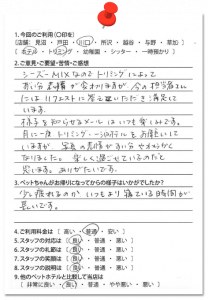 1.今回のご利用（○印を）
（店舗： 見沼 ・ 戸田 ・ 川口 ・ 所沢 ・ 越谷 ・ 与野 ・ 草加 ）
（ ホテル ・ トリミング ・ 幼稚園 ・ シッター ・ 一時預かり ）
2.ご意見・ご要望・苦情・ご感想
シーズーMIXなのでトリミングによって
ずい分表情が変わりますが、今の担当さん
にはリクエストに答え
満足して
います。
様子を知らせるメールはいつも楽しみです。
月に一度トリミング・
に
していま
いますが、写真の表情がずい分やわらかく
なりました。楽しく過ごせているのだと
思います。ありがたいです。
3.ペットちゃんがお帰りになってからの様子はいかがでしたか？
少し疲れるのか、いつもより寝ている時間が
長いです。
4.ご利用料金は （ 高い ・ 普通 ・ 安い ）
5.スタッフの対応は （ 良い ・ 普通 ・ 悪い ）
6.スタッフの礼節は （ 良い ・ 普通 ・ 悪い ）
7.スタッフの笑顔は （ 良い ・ 普通 ・ 悪い ）
8.スタッフの説明は （ 良い ・ 普通 ・ 悪い ）
9.他のペットホテルと比較して当店は
（ 非常に良い ・ 良い ・ 普通 ・ やや悪い ・ 悪い ）